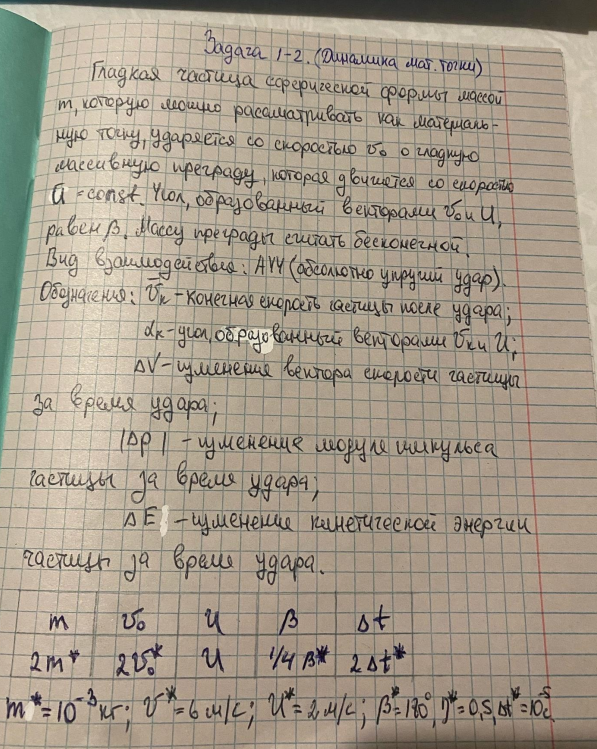 Задача 1-2. (Динамика мат. точки)
Гладкая частица сферической формы массой
m, которую можно рассматривать как материаль-
ную точку, ударяется со скоростью v₀ о гладкую
массивную преграду, которая движется со скоростью
U = const. Угол, образованный векторами v₀ и U,
равен β. Массу преграды считать бесконечной.
Вид взаимодействия: АУУ (абсолютно упругий удар).
Обозначения: v̄ₖ - конечная скорость частицы после удара;
αₖ - угол, образованный векторами v̄ₖ и U;
ΔV - изменение вектора скорости частицы
за время удара;
|Δp| - изменение модуля импульса
частицы за время удара;
ΔE - изменение кинетической энергии
частицы за время удара.
m v₀ U β Δt
2m* 2v₀* U 1/4 β* 2Δt*
m* = 10⁻³ кг; v* = 6 м/с; U* = 2 м/с; β* = 180°, η* = 0,5, Δt* = 10⁻⁵ с.